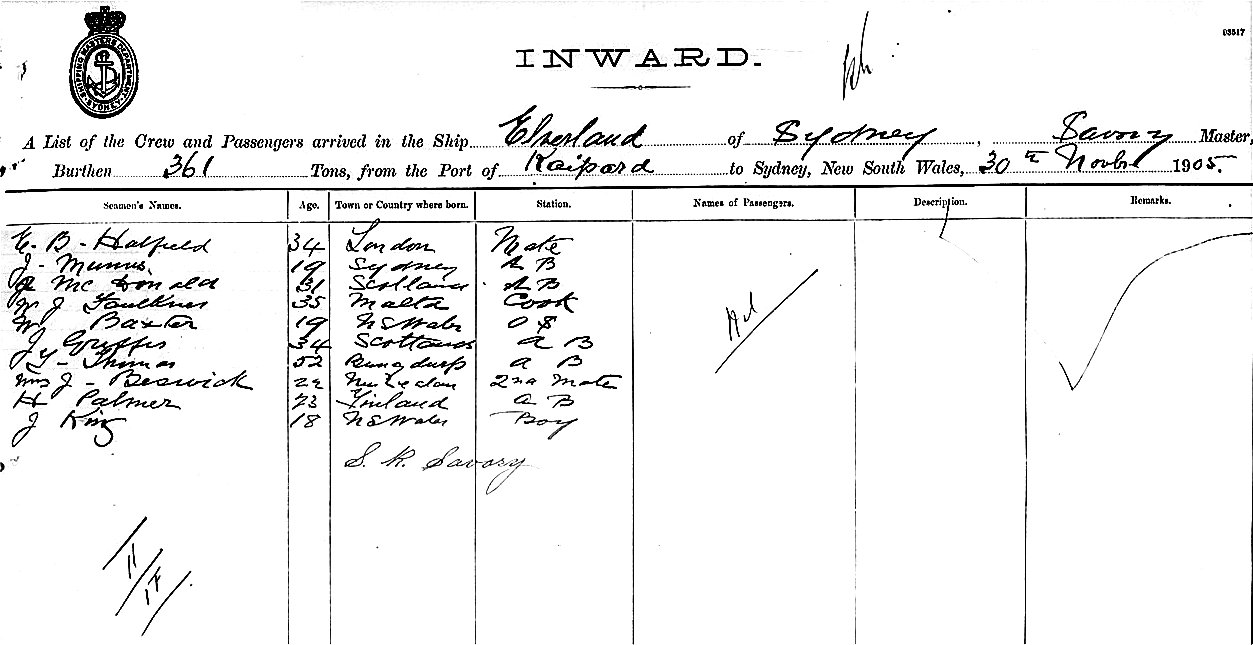 SHIPPING MASTERS DEPARTMENT SYDNEY
03517
INWARD.
A List of the Crew and Passengers arrived in the Ship Elverland of Sydney, Savory Master,
Burthen 361 Tons, from the Port of Kaipara to Sydney, New South Wales, 30th Novbr 1905.
Seamen's Names. Age. Town or Country where born. Station. Names of Passengers. Description. Remarks.
E. B. Hatfield 34 London Mate
J. 19 Sydney A B
Mc Donald 31 Scotland A B
W J Faulkner 35 Malta Cook
W Baxter 19 N S Wales O S
J 34 Scotland A B
Thomas 52 A B
J - Beswick 22 2nd Mate
H Palmer 23 Finland A B
J King 18 N S Wales Boy
S. R. Savory